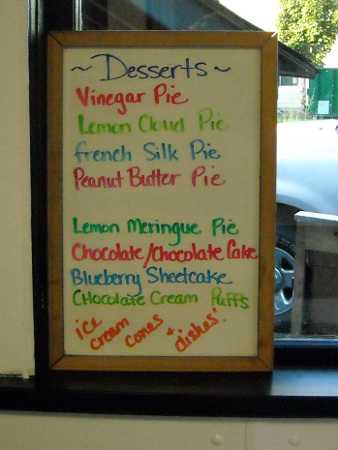 ~ Desserts ~
Vinegar Pie
Lemon Cloud Pie
french Silk Pie
Peanut Butter Pie
Lemon Meringue Pie
Chocolate/Chocolate Cake
Blueberry Sheetcake
CHocolate Cream Puffs
ice cream cones & dishes.